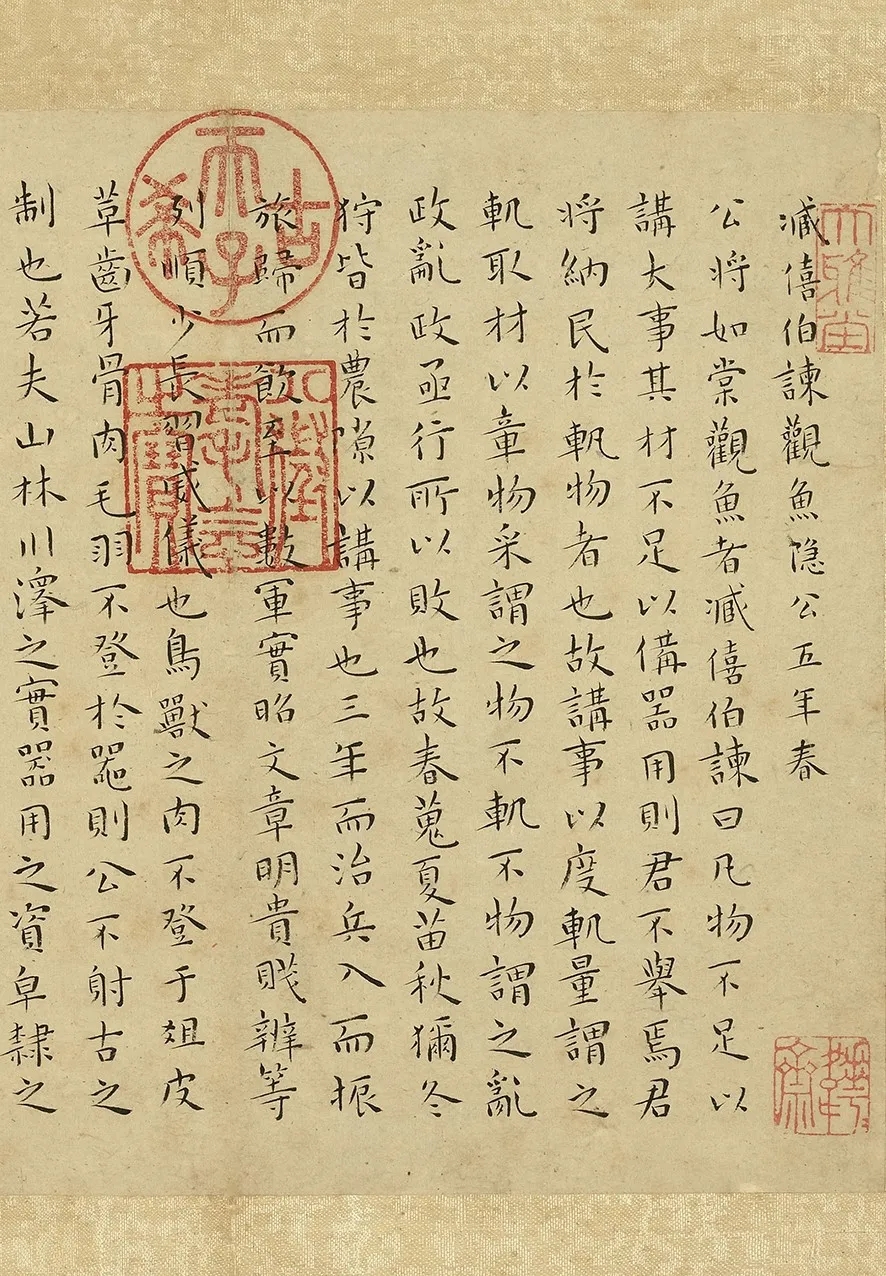 臧僖伯諫觀魚隐公五年春
公将如棠觀魚者臧僖伯諫曰凡物不足以
講大事其材不足以俻器用則君不舉焉君
将納民於軌物者也故講事以度軌量謂之
軌取材以章物采謂之物不軌不物謂之亂
政亂政亟行所以敗也故春蒐夏苗秋獮冬
狩皆於農隙以講事也三年而治兵入而振
旅歸而飲至以數軍實昭文章明貴賤辨等
列順少長習威儀也鳥獸之肉不登于俎皮
草齒牙骨肉毛羽不登於噐則公不射古之
制也若夫山林川澤之實器用之資皁隸之
古希天子